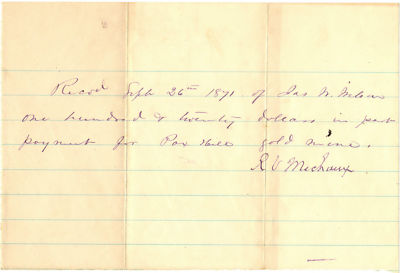 Recd Sept 26th 1871 of Jas W. Wilson
one hundred & twenty dollars in part
payment for Pax Hill gold mine.
R V Michaux